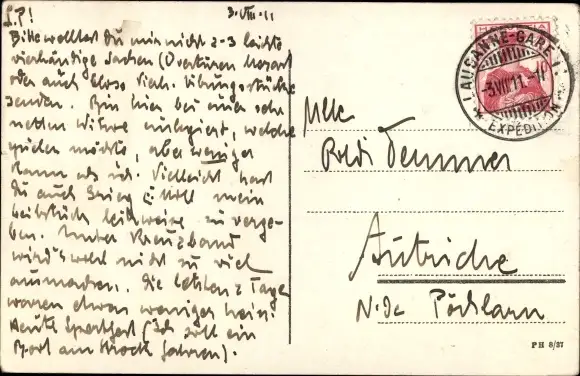 L. P!
3. VIII. 11
Bitte wolltest Du mir nicht 2-3 leichte
vierhändige Sachen (Ouvertüren Mozart
oder auch bloss vierh. Übungsstücke
senden. Bin hier bei einer sehr
netten Witwe einlogiert, welche
spielen möchte, aber weniger
kann als ich. Vielleicht hast
Du auch Grieg
Leibstück leihweise zu verge-
ben. Unter Kreuzband
wird's wohl nicht zu viel
ausmachen. Die letzten 2 Tage
waren etwas weniger heiss.
Heute Sportfest (Ich soll ein
Boot am fahren).
HELVETIA
LAUSANNE-GARE
-3.VIII.11.-11
EXPÉDITION
Mlle
Poldi Demmer
Autriche
N.Oe Pöchlarn
PH 8/27